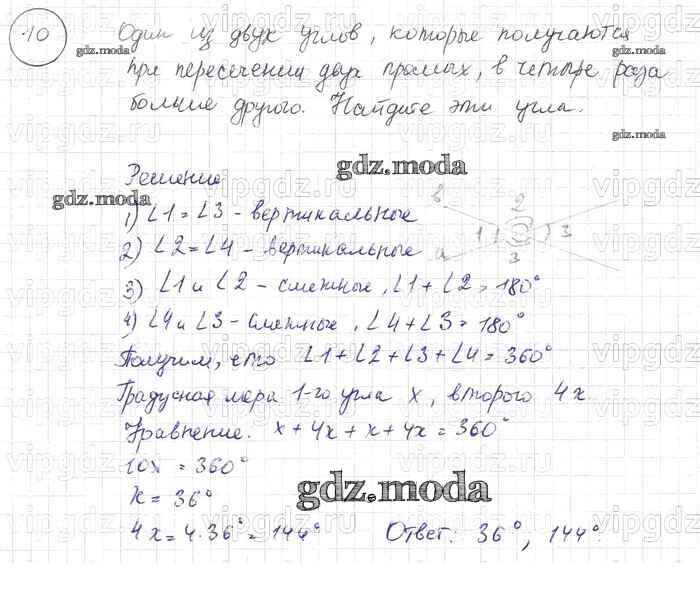 10
Один из двух углов, которые получаются
при пересечении двух прямых, в четыре раза
больше другого. Найдите эти угла.
Решение
1) ∠1 = ∠3 - вертикальные
2) ∠2 = ∠4 - вертикальные
3) ∠1 и ∠2 - смежные, ∠1 + ∠2 = 180°
4) ∠4 и ∠3 - смежные, ∠4 + ∠3 = 180°
Получим, что ∠1 + ∠2 + ∠3 + ∠4 = 360°
Градусная мера 1-го угла x, второго 4x
Уравнение. x + 4x + x + 4x = 360°
10x = 360°
x = 36°
4x = 4·36° = 144° Ответ: 36°, 144°.
в
2
1
3
а
3
gdz.moda
gdz.moda
gdz.moda
gdz.moda
gdz.moda
gdz.moda
gdz.moda
vipgdz.ru